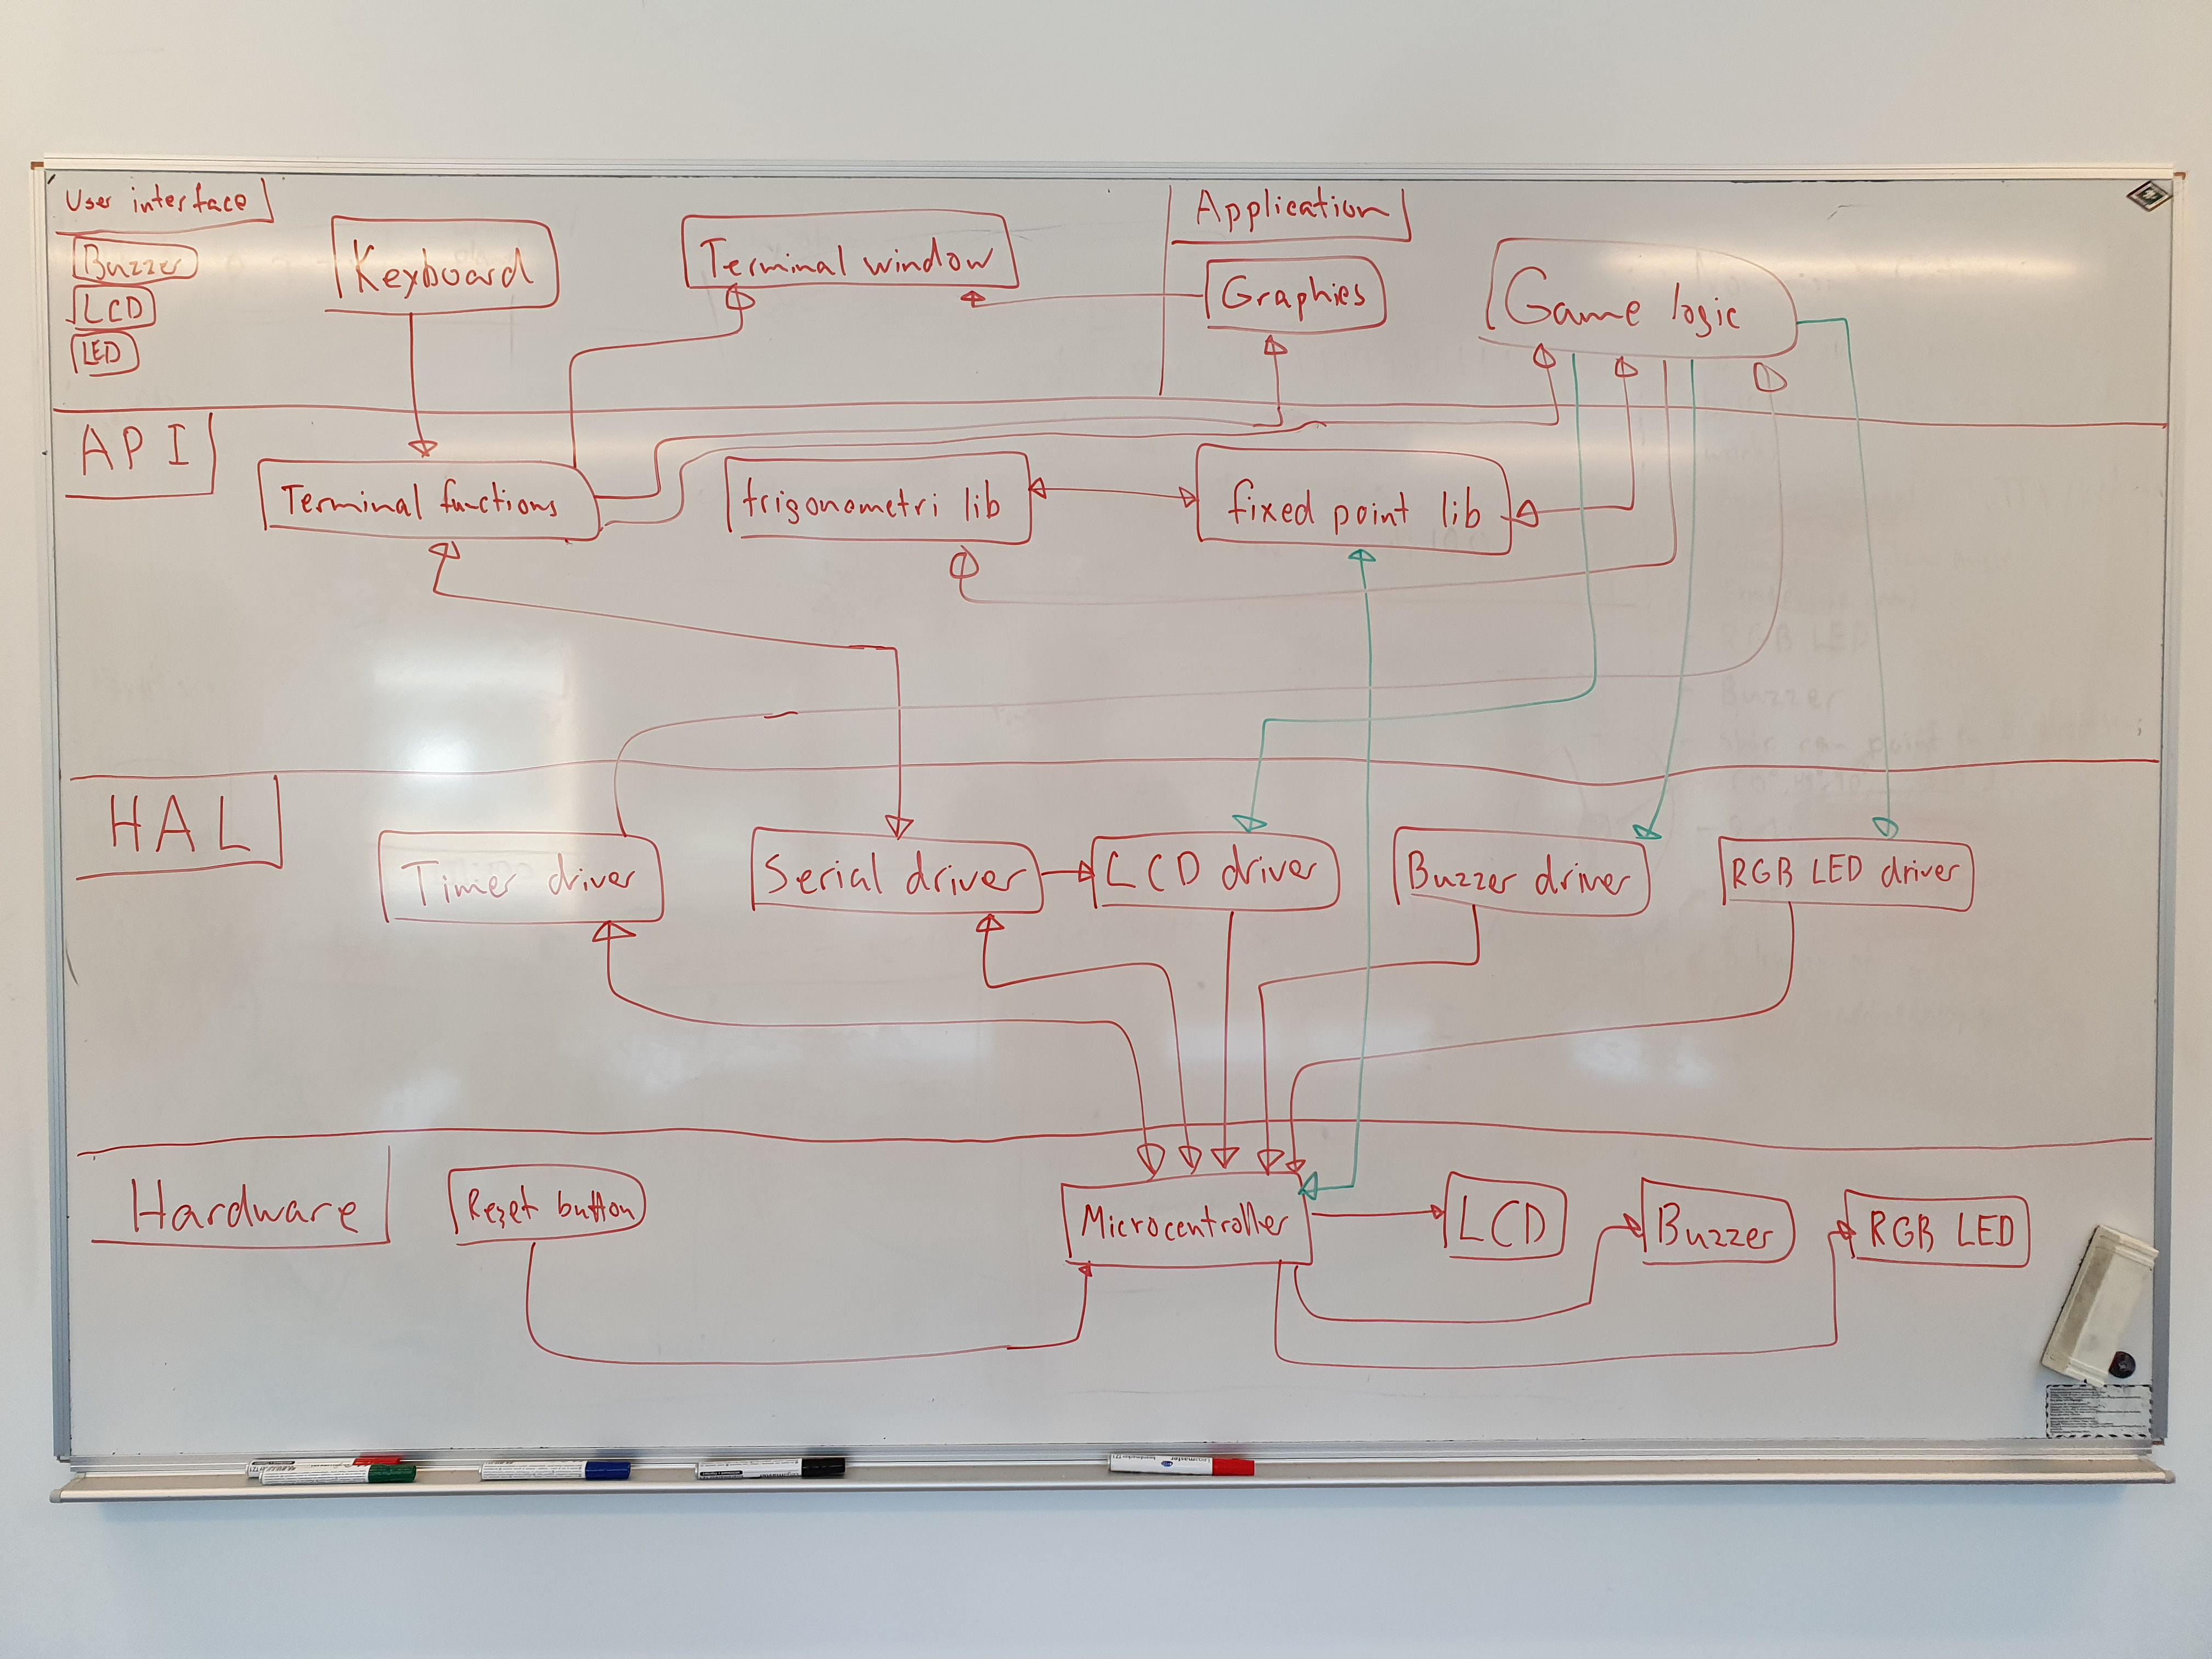 User interface
Application
Buzzer
LCD
LED
Keyboard
Terminal window
Graphics
Game logic
API
Terminal functions
trigonometri lib
fixed point lib
HAL
Timer driver
Serial driver
LCD driver
Buzzer driver
RGB LED driver
Hardware
Reset button
Microcontroller
LCD
Buzzer
RGB LED